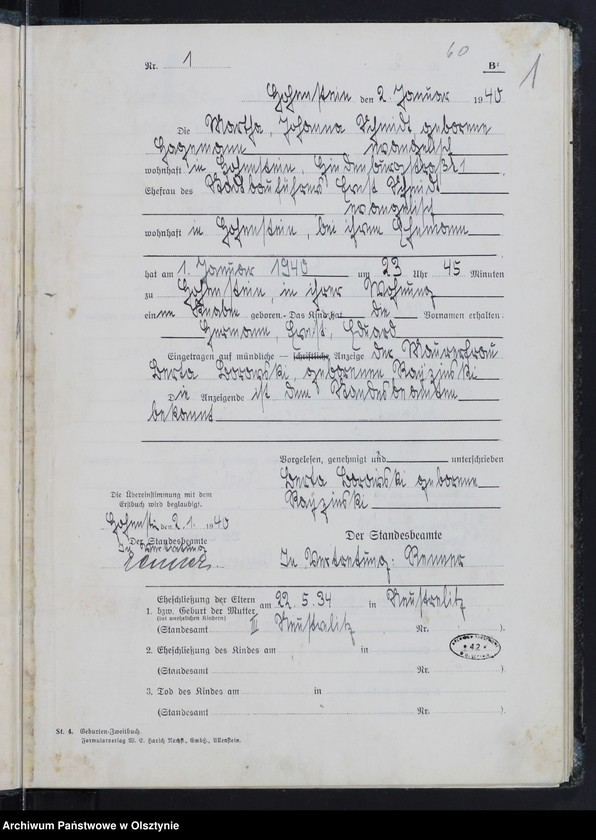 60
Nr. 1 B:
1
Hohenstein den 2. Januar 1940
Die Martha, Johanna Schmidt geborene
Hagemann evangelisch
wohnhaft in Hohenstein, Hindenburgstraße 1
Ehefrau des Stadtbauführers Ernst Schmidt
evangelisch
wohnhaft in Hohenstein, bei ihrem Ehemann
hat am 1. Januar 1940 um 23 Uhr 45 Minuten
zu Hohenstein, in ihrer Wohnung
einen Knaben geboren. Das Kind hat die Vornamen erhalten:
Hermann, Ernst, Eduard
Eingetragen auf mündliche — schriftliche Anzeige der Maurerfrau
Berta Borowski, geborenen
Die Anzeigende ist dem Standesbeamten
bekannt
Vorgelesen, genehmigt und unterschrieben
Berta Borowski geborene
Die Übereinstimmung mit dem
Erstbuch wird beglaubigt.
Hohenstein den 2.1. 1940
Der Standesbeamte
In Vertretung
Renner
Der Standesbeamte
In Vertretung: Renner
Eheschließung der Eltern
1. bzw. Geburt der Mutter am 22.5.34 in Neustrelitz
(bei unehelichen Kindern)
(Standesamt III Neustrelitz Nr. ).
2. Eheschließung des Kindes am in
(Standesamt Nr. ).
42
3. Tod des Kindes am in
(Standesamt Nr. ).
St. 4. Geburten-Zweitbuch.
Formularverlag W. E. Harich Nachf., GmbH., Allenstein.
Archiwum Państwowe w Olsztynie